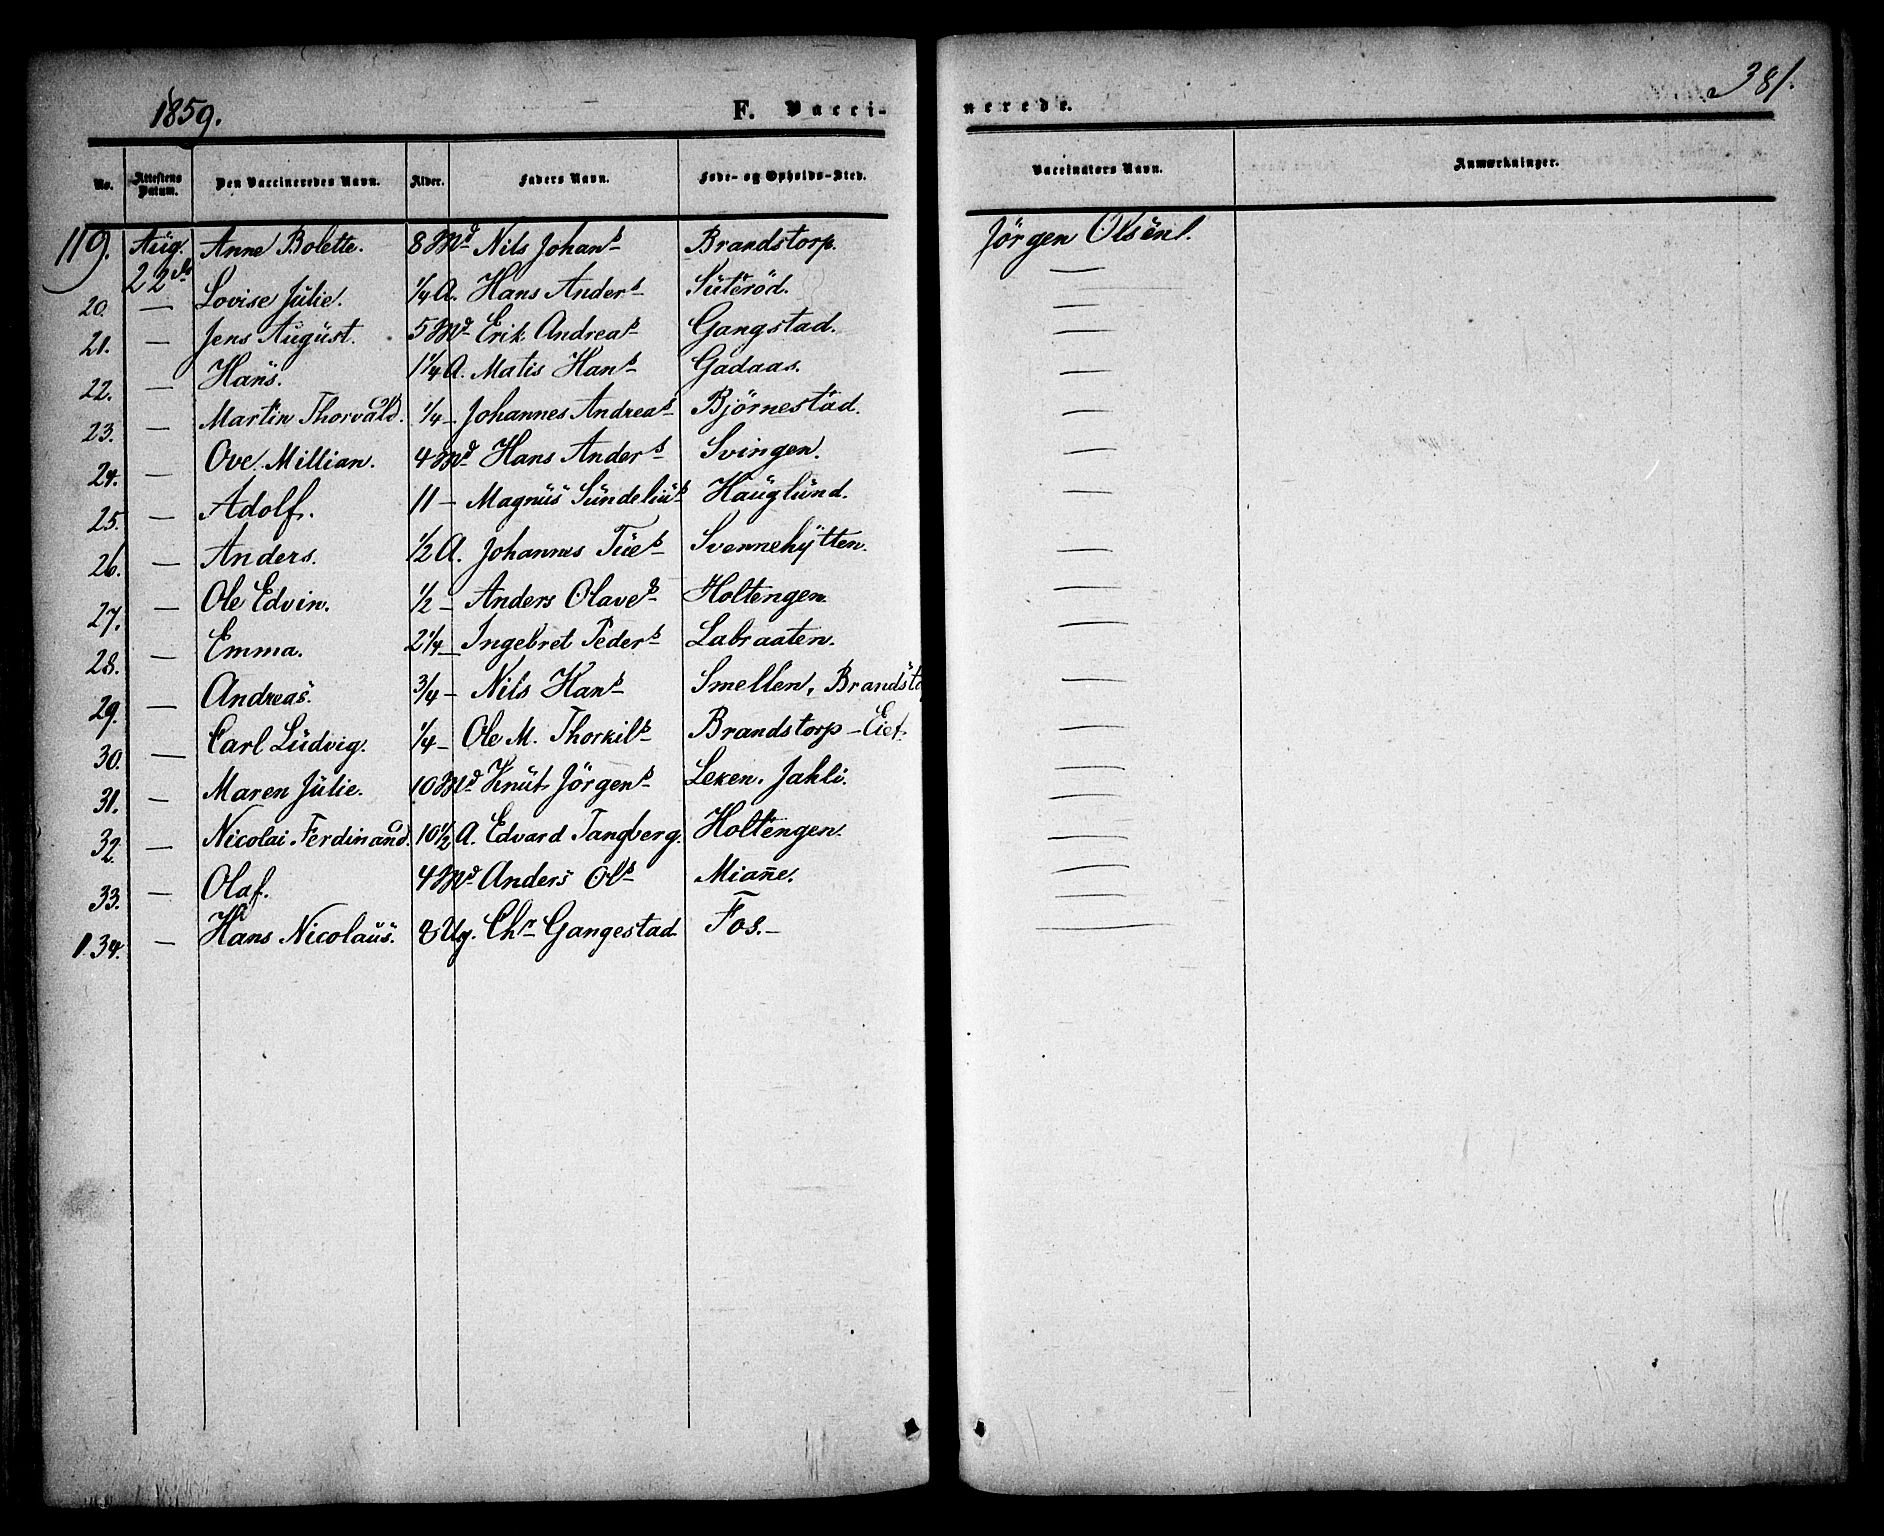 1859. F. Vacci- nerede. 381.
No. Attestens Datum. Den Vaccineredes Navn. Alder. Faders Navn. Føde- og Opholds-Sted. Vaccinators Navn. Anmærkninger.
119. Aug. 22de Anne Bolette. 8 Md Nils Johans Brandstorp. Jörgen Olsen.
20. — Lovise Julie. 1/4 A. Hans Anders Suteröd. —
21. — Jens August. 5 Md Erik Andreas Gangstad. —
22. — Hans. 1 1/4 A. Matis Hans Gadaas. —
23. — Martin Thorvald. 1/4 — Johannes Andreas Bjørnestad. —
24. — Ove Millian. 4 Md Hans Anders Svingen. —
25. — Adolf. 11 — Magnus Sundelius Hauglund. —
26. — Anders. 1/2 A. Johannes Tües Svennehytten. —
27. — Ole Edvin. 1/2 — Anders Olaves Holtengen. —
28. — Emma. 2 1/4 — Ingebret Peders Labraaten. —
29. — Andreas. 3/4 — Nils Hans Smellen, Brandsto —
30. — Carl Ludvig. 1/4 — Ole M. Thorkils Brandstorp-Eiet. —
31. — Maren Julie. 10 Md Knut Jörgens Leken. Jahli. —
32. — Nicolai Ferdinand. 10 1/2 A. Edvard Tangberg. Holtengen. —
33. — Olaf. 4 Md Anders Ols Miane. —
134. — Hans Nicolaus. 8 Ug. Chr Gangestad Fos. —